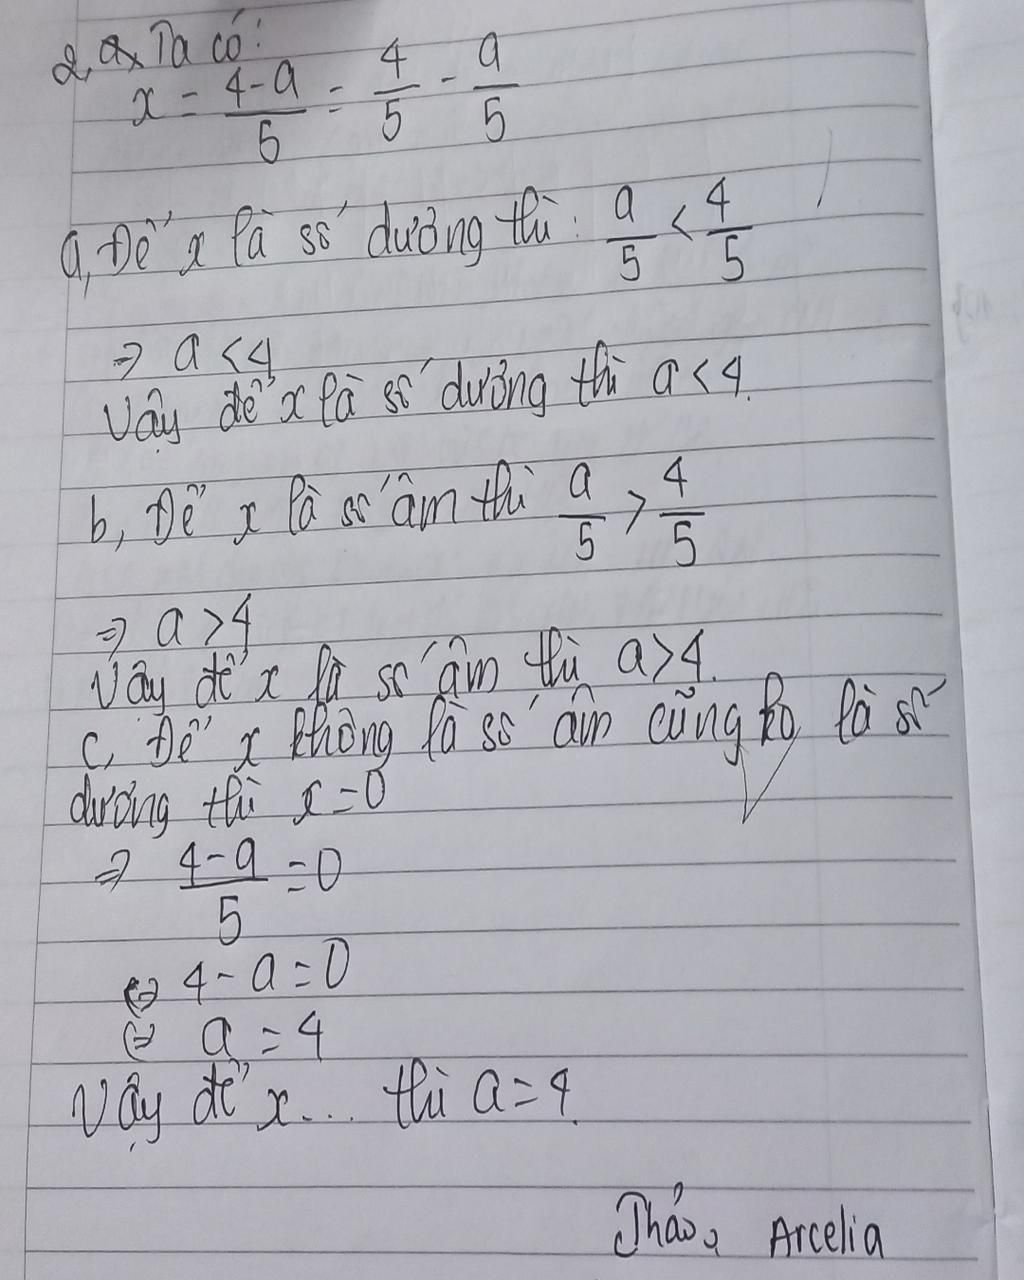 2, a, Ta có:
x = \frac{4-a}{5} = \frac{4}{5} - \frac{a}{5}
a, Để x là số dương thì: \frac{a}{5} < \frac{4}{5}
⇒ a < 4
Vậy để x là số dương thì a < 4.
b, Để x là số âm thì \frac{a}{5} > \frac{4}{5}
⇒ a > 4
Vậy để x là số âm thì a > 4.
c, Để x không là số âm cũng ko là số
dương thì x = 0
⇒ \frac{4-a}{5} = 0
⇔ 4 - a = 0
⇔ a = 4
Vậy để x... thì a = 4.
Thảo, Arcelia